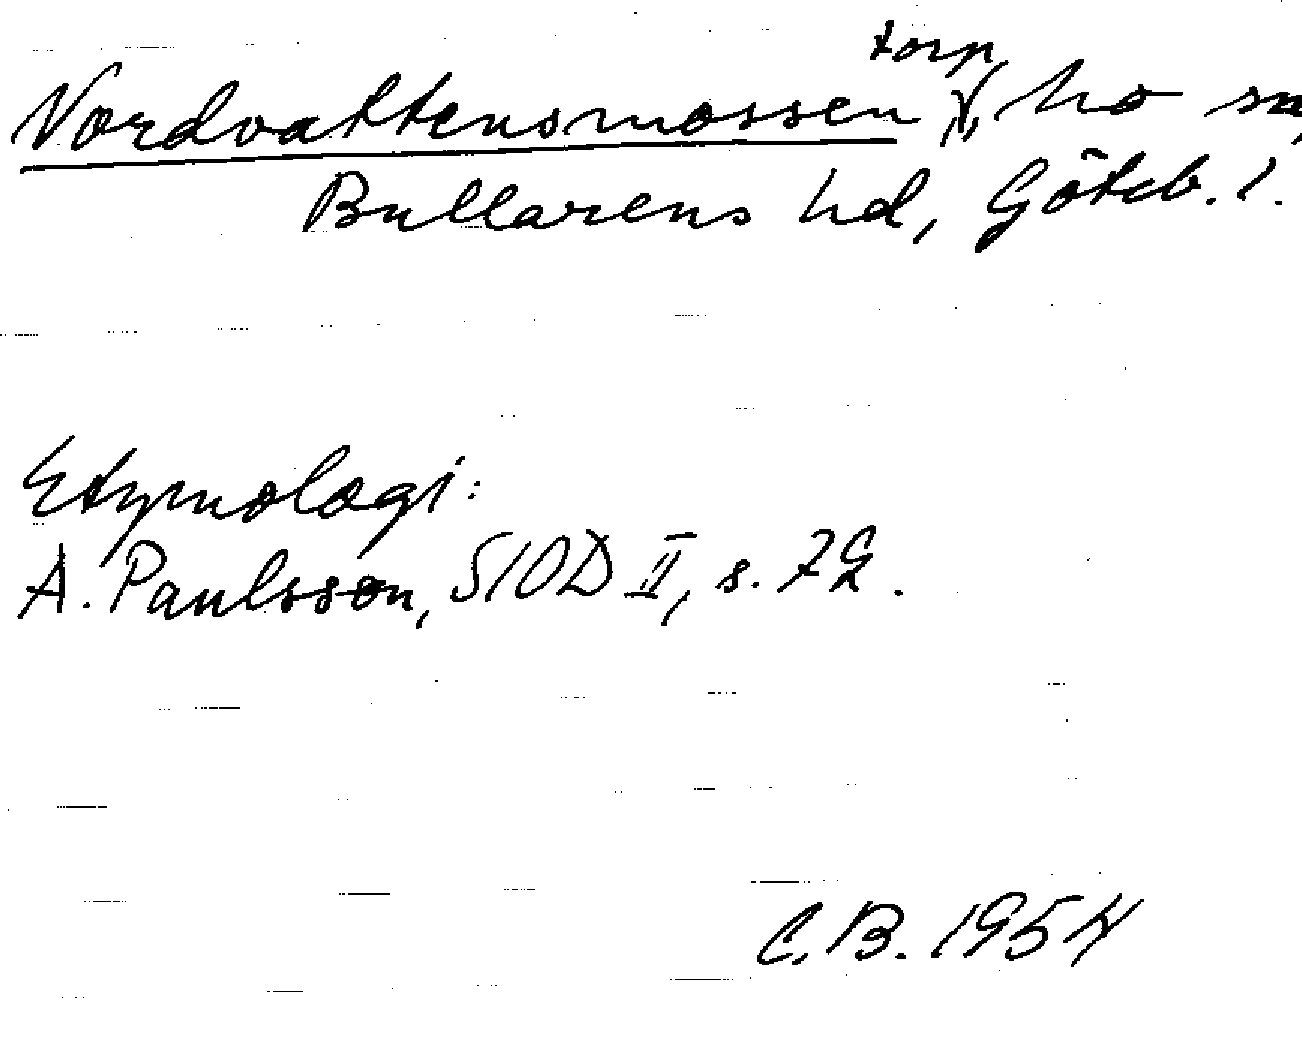 torp
Nordvattensmossen, Mo sn,
Bullarens hd, Göteb. l.
Etymologi:
A. Paulsson, SIOD II, s. 72.
C.B. 1954